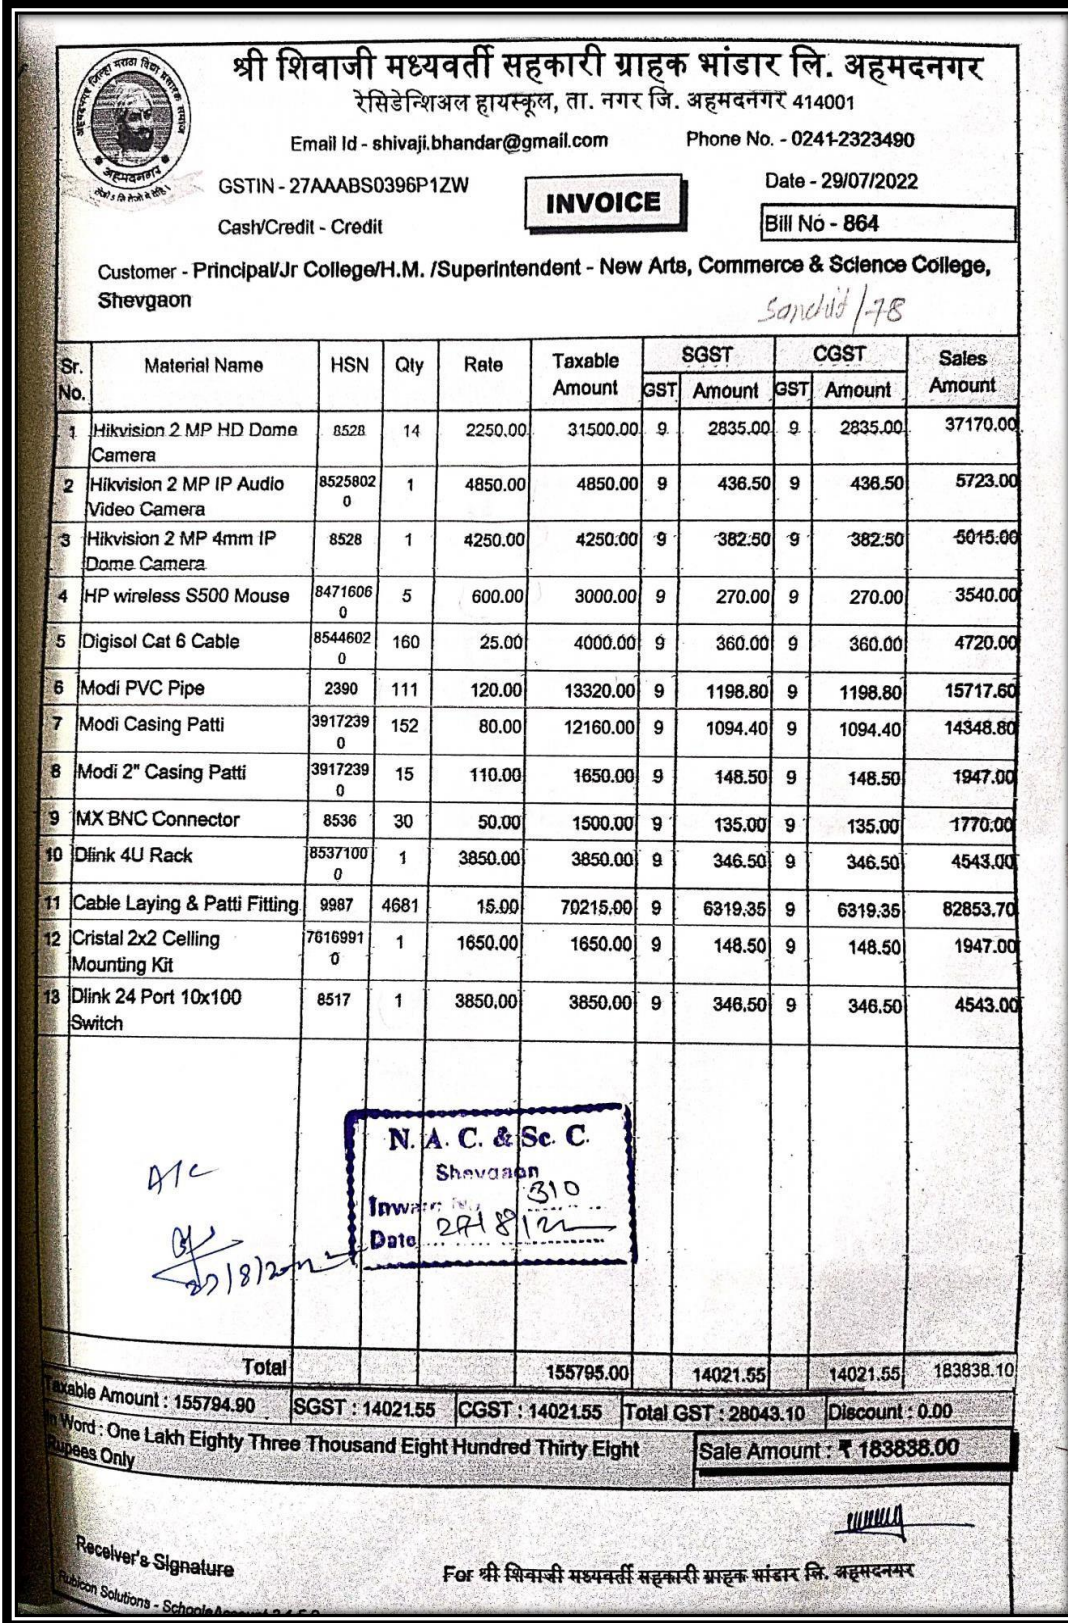 श्री शिवाजी मध्यवर्ती सहकारी ग्राहक भांडार लि. अहमदनगर
रेसिडेन्शिअल हायस्कूल, ता. नगर जि. अहमदनगर 414001
Email Id - shivaji.bhandar@gmail.com Phone No. - 0241-2323490
GSTIN - 27AAABS0396P1ZW INVOICE Date - 29/07/2022
Cash/Credit - Credit Bill No - 864
Customer - Principal/Jr College/H.M. /Superintendent - New Arts, Commerce & Science College,
Shevgaon
/78
Sr. No. Material Name HSN Qty Rate Taxable Amount SGST CGST Sales Amount
GST Amount GST Amount
1 Hikvision 2 MP HD Dome 8528 14 2250.00 31500.00 9 2835.00 9 2835.00 37170.00
Camera
2 Hikvision 2 MP IP Audio 8525802 1 4850.00 4850.00 9 436.50 9 436.50 5723.00
Video Camera 0
3 Hikvision 2 MP 4mm IP 8528 1 4250.00 4250.00 9 382.50 9 382.50 5015.00
Dome Camera
4 HP wireless S500 Mouse 8471606 5 600.00 3000.00 9 270.00 9 270.00 3540.00
0
5 Digisol Cat 6 Cable 8544602 160 25.00 4000.00 9 360.00 9 360.00 4720.00
0
6 Modi PVC Pipe 2390 111 120.00 13320.00 9 1198.80 9 1198.80 15717.60
7 Modi Casing Patti 3917239 152 80.00 12160.00 9 1094.40 9 1094.40 14348.80
0
8 Modi 2" Casing Patti 3917239 15 110.00 1650.00 9 148.50 9 148.50 1947.00
0
9 MX BNC Connector 8536 30 50.00 1500.00 9 135.00 9 135.00 1770.00
10 Dlink 4U Rack 8537100 1 3850.00 3850.00 9 346.50 9 346.50 4543.00
0
11 Cable Laying & Patti Fitting 9987 4681 15.00 70215.00 9 6319.35 9 6319.35 82853.70
12 Cristal 2x2 Celling 7616991 1 1650.00 1650.00 9 148.50 9 148.50 1947.00
Mounting Kit 0
13 Dlink 24 Port 10x100 8517 1 3850.00 3850.00 9 346.50 9 346.50 4543.00
Switch
N. A. C. & Sc. C.
Shevgaon
Inward No. 310
Date 27/8/22
A/C
27/8/2022
Total 155795.00 14021.55 14021.55 183838.10
Taxable Amount : 155794.90 SGST : 14021.55 CGST : 14021.55 Total GST : 28043.10 Discount : 0.00
In Word : One Lakh Eighty Three Thousand Eight Hundred Thirty Eight
Rupees Only Sale Amount : ₹ 183838.00
Receiver's Signature For श्री शिवाजी मध्यवर्ती सहकारी ग्राहक भांडार लि. अहमदनगर
Rubicon Solutions -